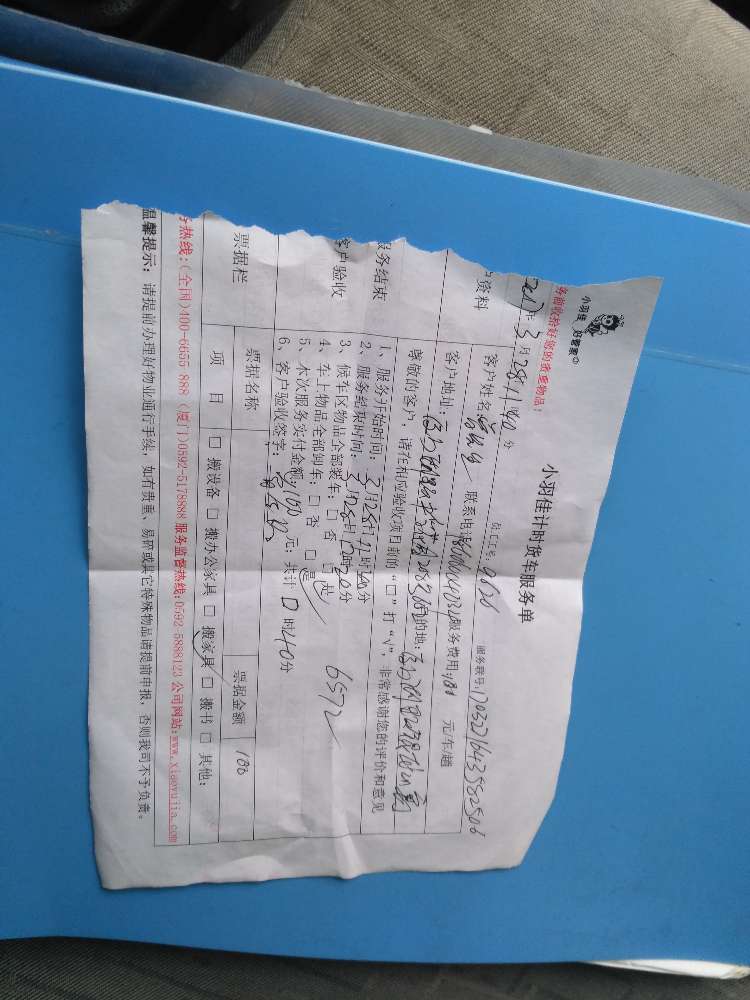 小羽佳 好管家
务前收拾好您的贵重物品！
小羽佳计时货车服务单
2017年3月28日11时40分 员工工号：9626 服务联号：17032716435582506
户资料
客户姓名： 联系电话： 服务费用：180 元/车/趟
客户地址： 目的地：
尊敬的客户，请在相应验收项目前的“□”打“√”，非常感谢您的评价和意见
服务结束
客户验收
1、服务开始时间：3月28日11时40分
2、服务结束时间：3月28日12时20分
3、候车区物品全部装车：□ 否 □ 是
4、车上物品全部卸车：□ 否 □ 是
5、本次服务实付金额：180元；共计 0 时40分
6、客户验收签字：
6572
票据栏 票据名称 票据金额 180
项 目 □ 搬设备 □ 搬办公家具 □ 搬家具 □ 搬书 □ 其他：
务热线：(全国)400-6655-888 (厦门)0592-5178888 服务监督热线：0592-5888123 公司网站：www.xiaoyujia.com
温馨提示：请提前办理好物业通行手续，如有贵重、易碎或其它特殊物品请提前申报，否则我司不予负责。